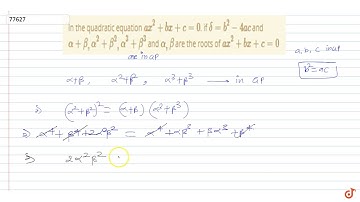 77627
In the quadratic equation ax² + bx + c = 0. if δ = b² − 4ac and
α + β, α² + β², α³ + β³ and α, β are the roots of ax² + bx + c = 0
are in GP
a, b, c in GP
b² = ac
α+β, α²+β², α³+β³ → in GP
⇒ (α²+β²)² = (α+β) (α³+β³)
⇒ α⁴ + β⁴ + 2α²β² = α⁴ + αβ³ + βα³ + β⁴
⇒ 2α²β²